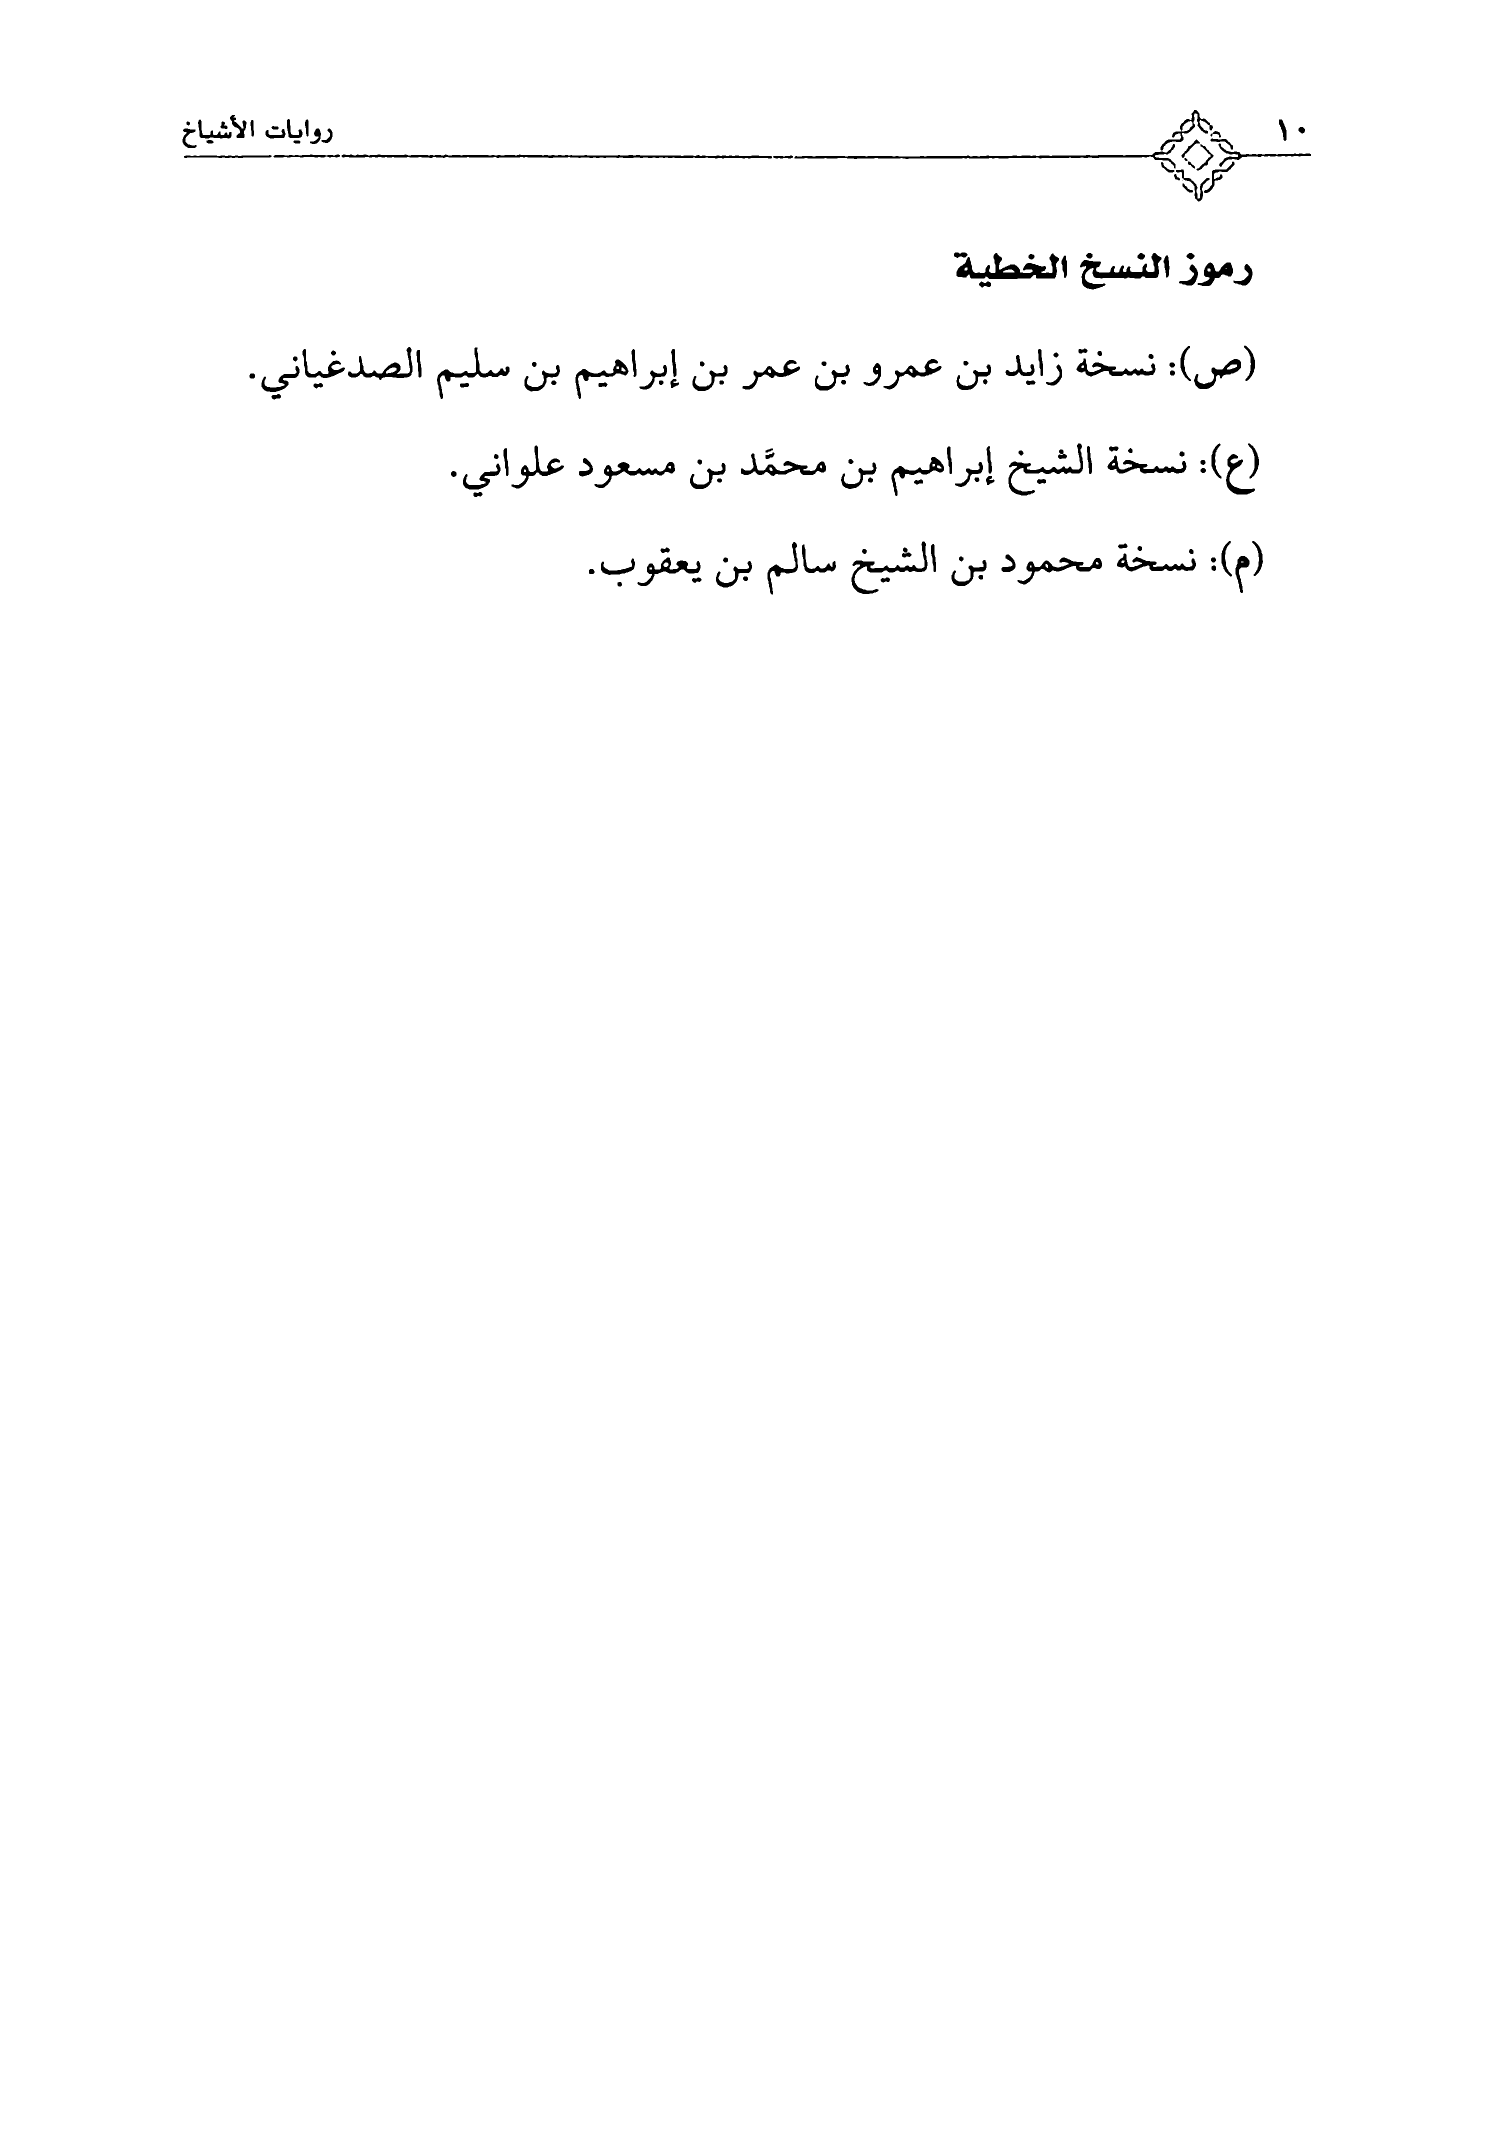 ١٠ روايات الأشياخ
رموز النسخ الخطية
(ص): نسخة زايد بن عمرو بن عمر بن إبراهيم بن سليم الصدغياني.
(ع): نسخة الشيخ إبراهيم بن محمَّد بن مسعود علواني.
(م): نسخة محمود بن الشيخ سالم بن يعقوب.